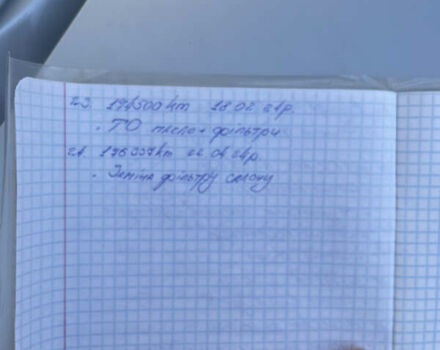 23. 174500 km 18 02 24р.
• ТО масло + фільтри
24. 176337 km 02 04 24р.
• Заміна фільтру салону